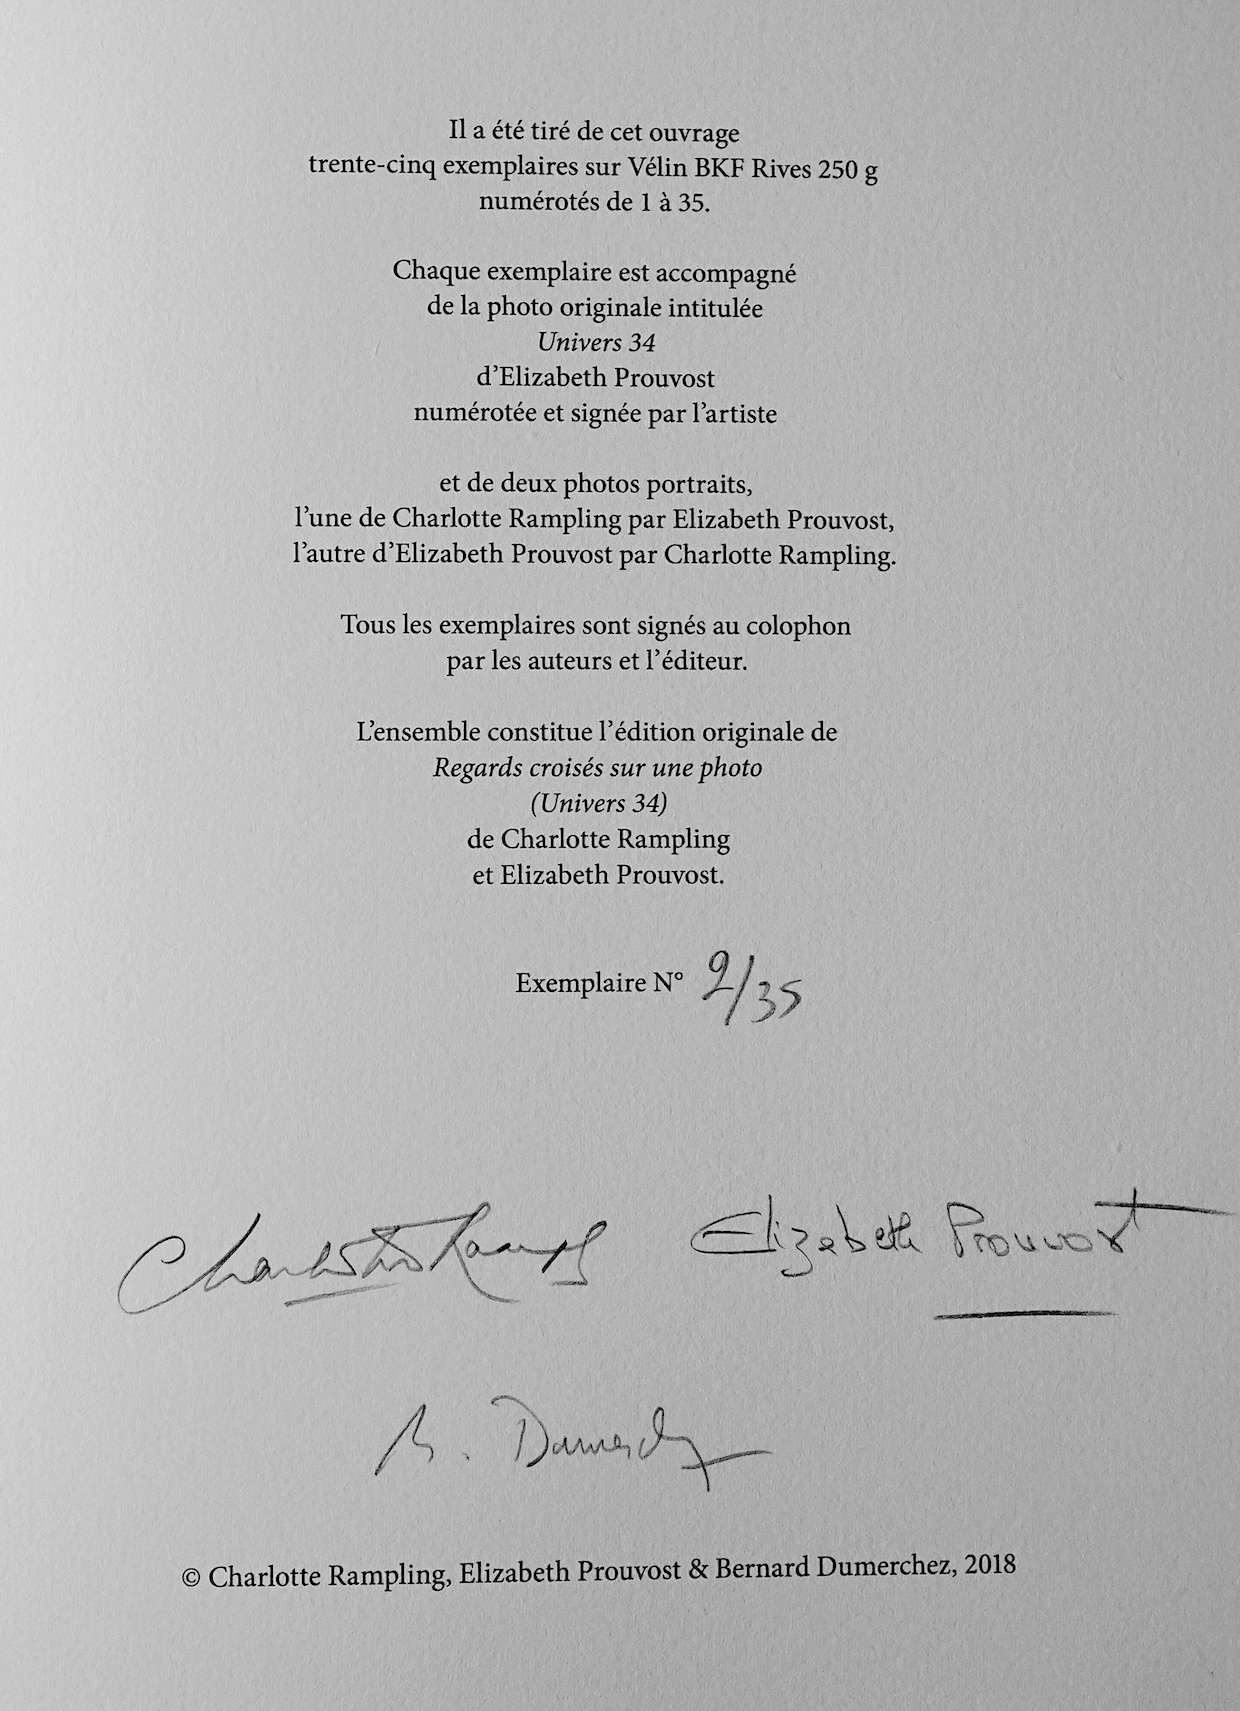 Il a été tiré de cet ouvrage
trente-cinq exemplaires sur Vélin BKF Rives 250 g
numérotés de 1 à 35.
Chaque exemplaire est accompagné
de la photo originale intitulée
Univers 34
d’Elizabeth Prouvost
numérotée et signée par l’artiste
et de deux photos portraits,
l’une de Charlotte Rampling par Elizabeth Prouvost,
l’autre d’Elizabeth Prouvost par Charlotte Rampling.
Tous les exemplaires sont signés au colophon
par les auteurs et l’éditeur.
L’ensemble constitue l’édition originale de
Regards croisés sur une photo
(Univers 34)
de Charlotte Rampling
et Elizabeth Prouvost.
Exemplaire N° 2/35
Charlotte Rampling Elizabeth Prouvost
B. Dumerchez
© Charlotte Rampling, Elizabeth Prouvost & Bernard Dumerchez, 2018